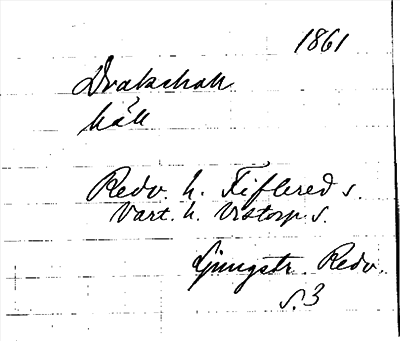 1861
Drakahall
häll
Redv. h. Tiflered s.
Vart. h. Vistorp s.
Ljungstr. Redv.
s. 3